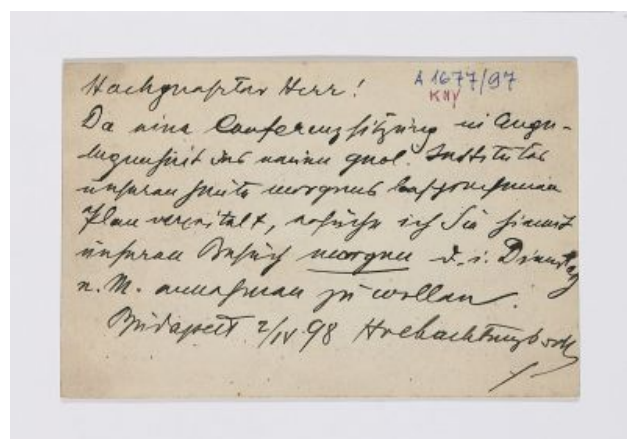 A 1677/97
Hochgeehrter Herr!
Da eine Conferenzsitzung in Ange-
legenheit des neuen geol. Institutes
unseren heute morgens besprochenen
Plan vereitelt, ersuche ich Sie hiemit
unseren Besuch morgen d. i. Dienstag
n. M. annehmen zu wollen.
Budapest 2/IV 98 Hochachtungsvoll